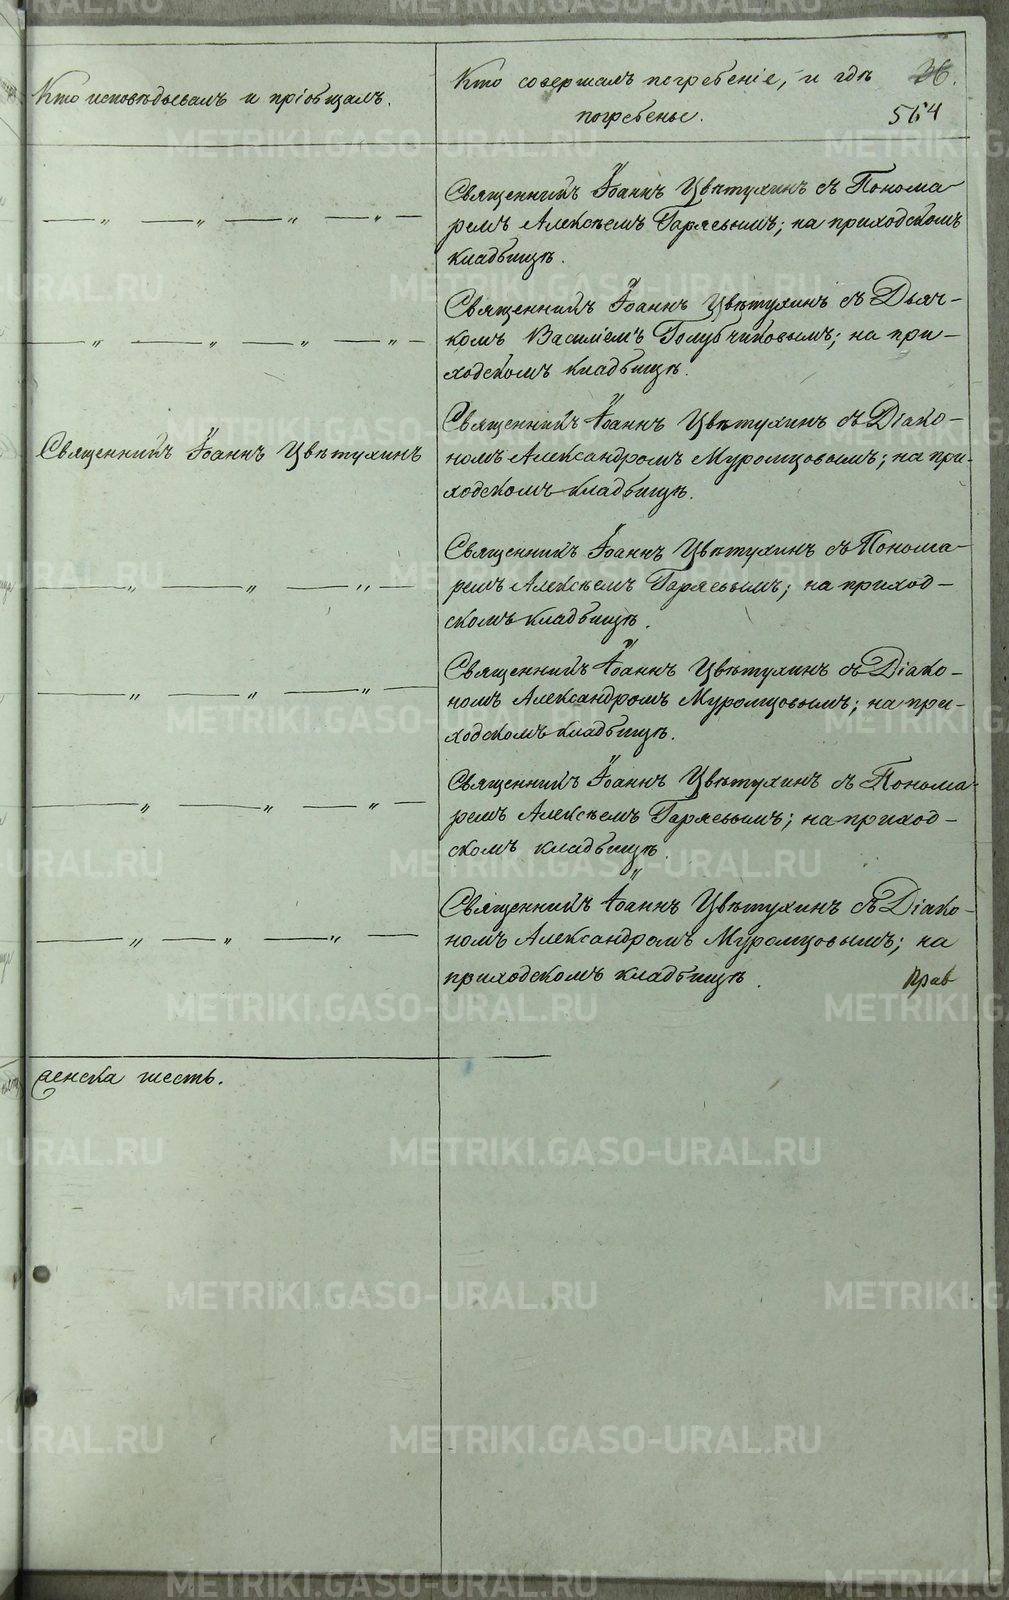 Кто исповѣдывалъ и пріобщалъ.
Кто совершалъ погребеніе, и гдѣ
погребены.
564
Священникъ Іоаннъ Цвѣтухинъ съ Понома-
ремъ Алексѣемъ Гаряевымъ; на приходскомъ
кладбищѣ.
Священникъ Іоаннъ Цвѣтухинъ съ Дьяч-
комъ Василіемъ Голубчиковымъ; на при-
ходскомъ кладбищѣ.
Священникъ Іоаннъ Цвѣтухинъ
Священникъ Іоаннъ Цвѣтухинъ съ Діако-
номъ Александромъ Муромцовымъ; на при-
ходскомъ кладбищѣ.
Священникъ Іоаннъ Цвѣтухинъ съ Понома-
ремъ Алексѣемъ Гаряевымъ; на приход-
скомъ кладбищѣ.
Священникъ Іоаннъ Цвѣтухинъ съ Діако-
номъ Александромъ Муромцовымъ; на при-
ходскомъ кладбищѣ.
Священникъ Іоаннъ Цвѣтухинъ съ Понома-
ремъ Алексѣемъ Гаряевымъ; на приход-
скомъ кладбищѣ.
Священникъ Іоаннъ Цвѣтухинъ съ Діако-
номъ Александромъ Муромцовымъ; на
приходскомъ кладбищѣ.
Прав
женска шесть.
METRIKI.GASO-URAL.RU